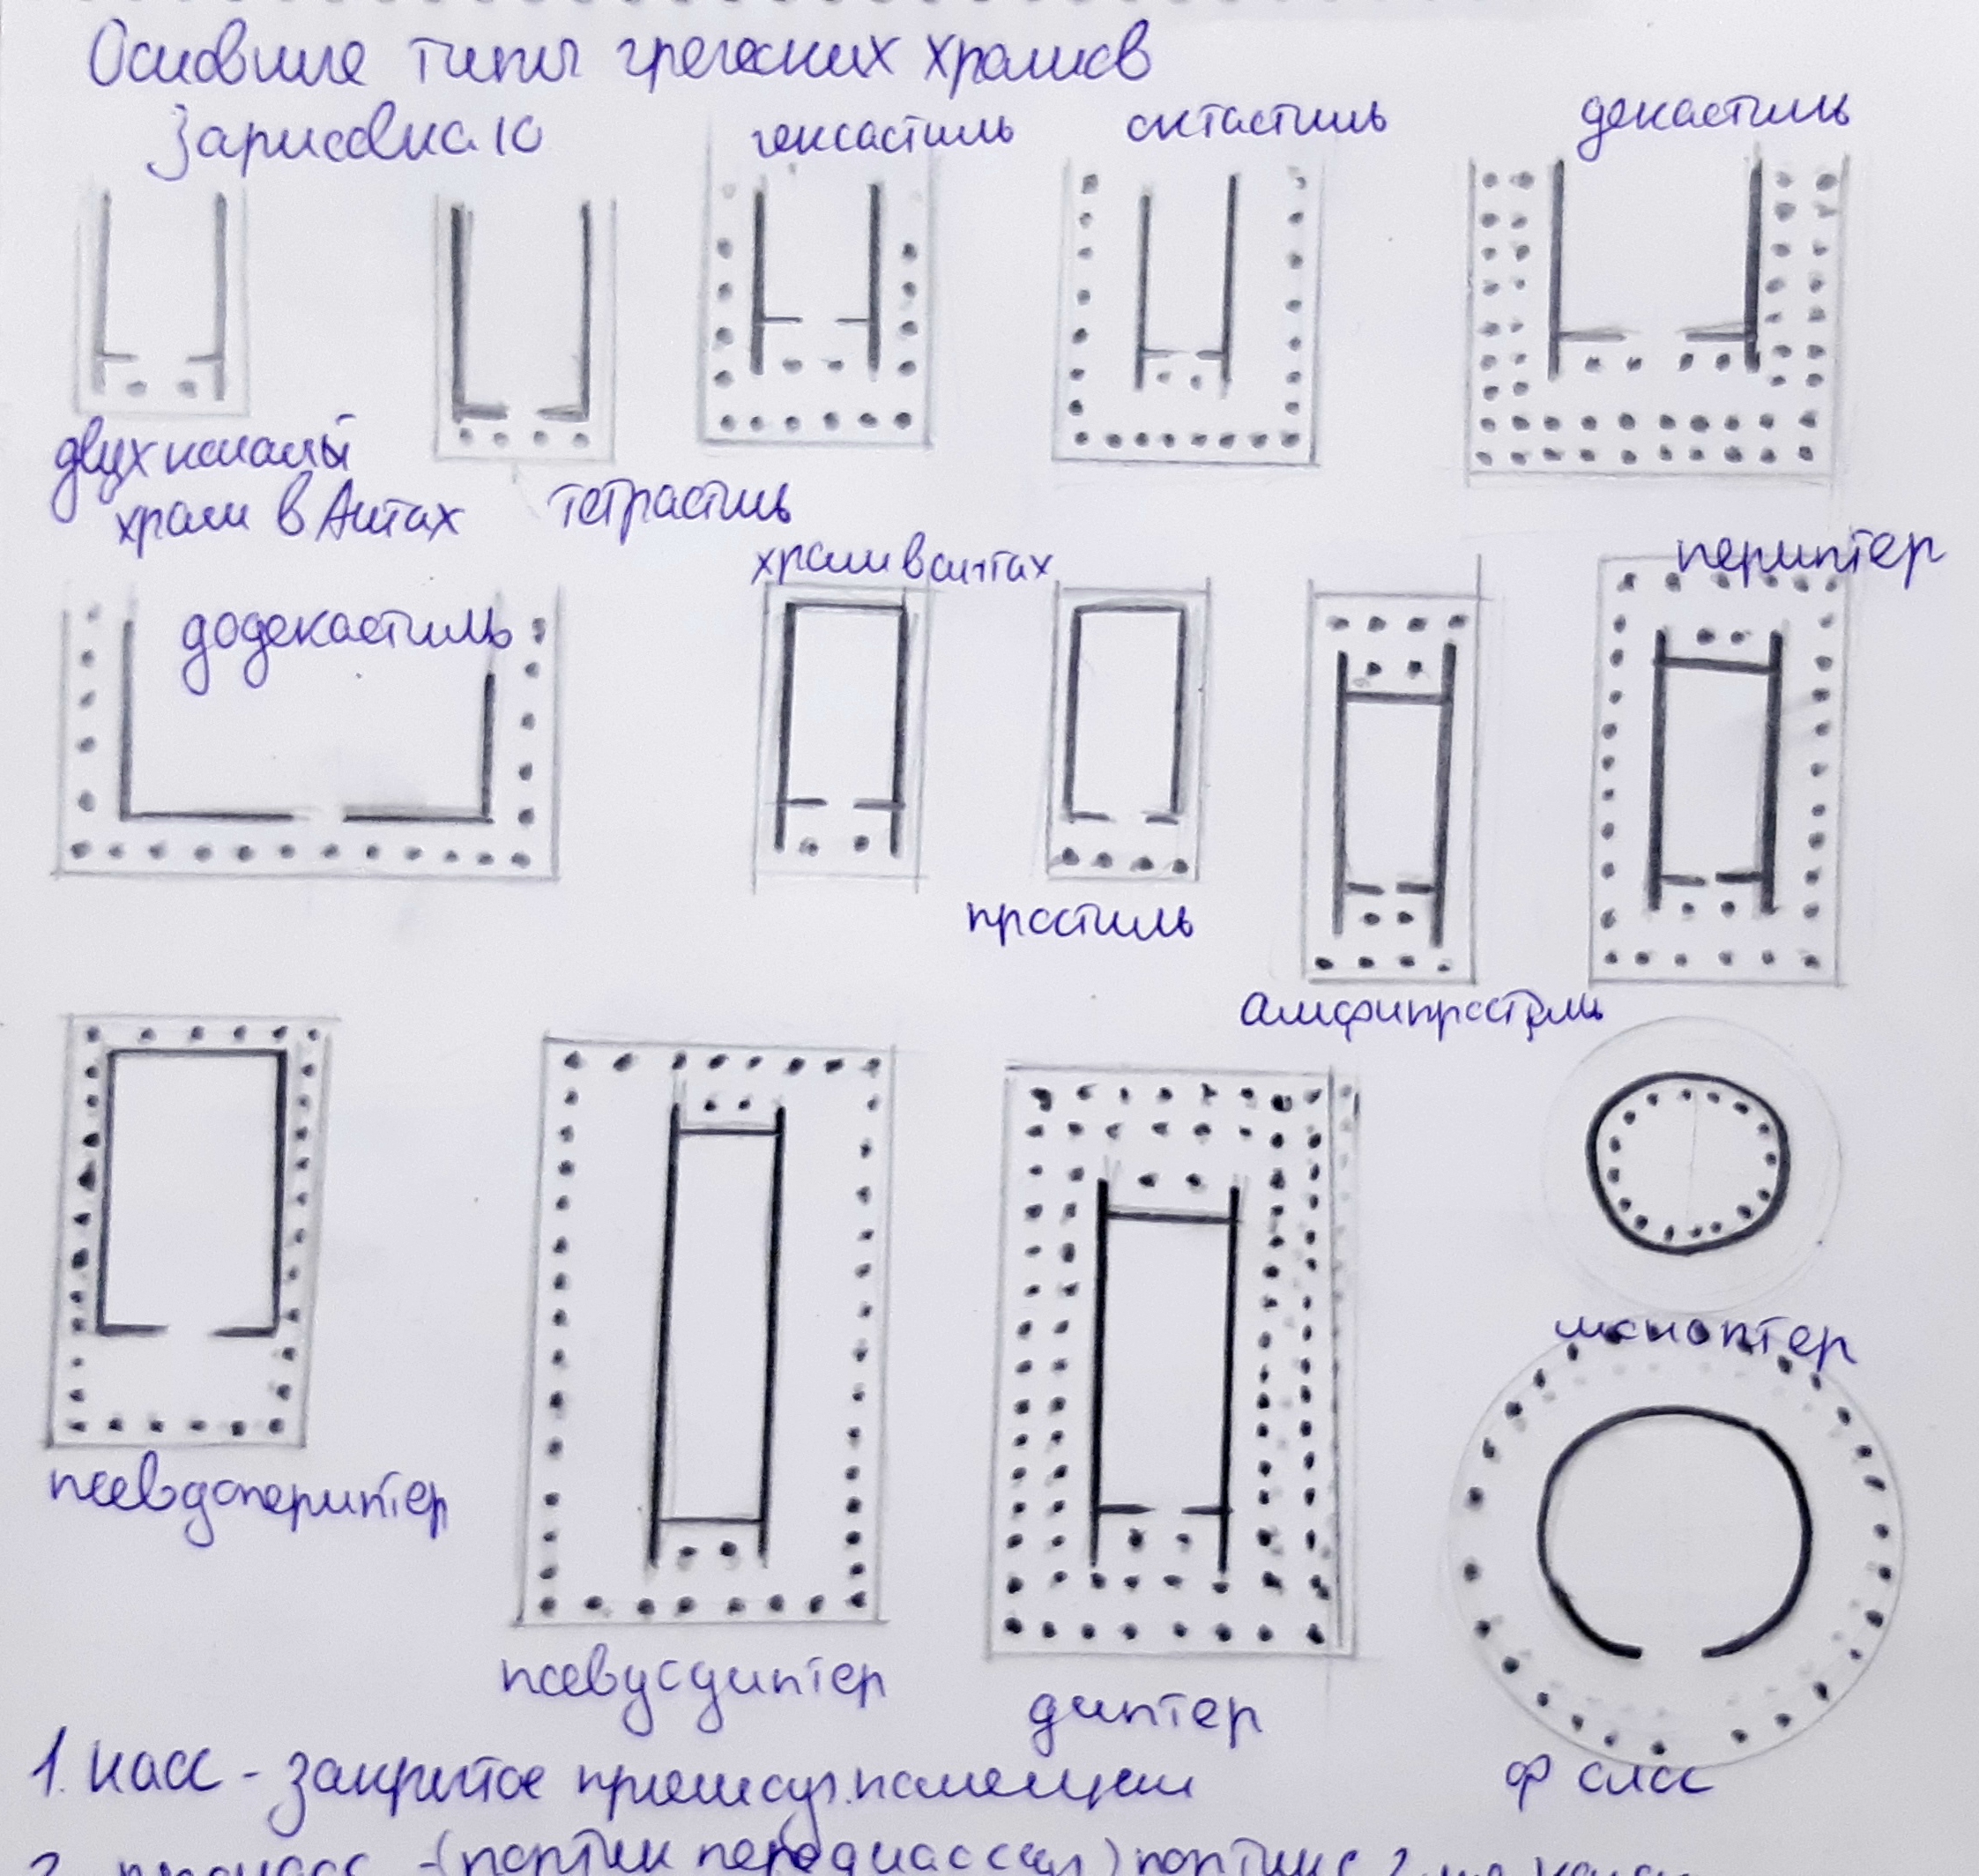 Основные типы греческих храмов
Зарисовка 10
гексастиль
октастиль
декастиль
двухколонный
храм в Антах
тетрастиль
храм в антах
периптер
додекастиль
простиль
амфипростиль
моноптер
псевдопериптер
псевдодиптер
диптер
фолос
1. наос - закрытое прямоуг. помещение
2. пронаос - (портик перед наосом) портик с 2-мя